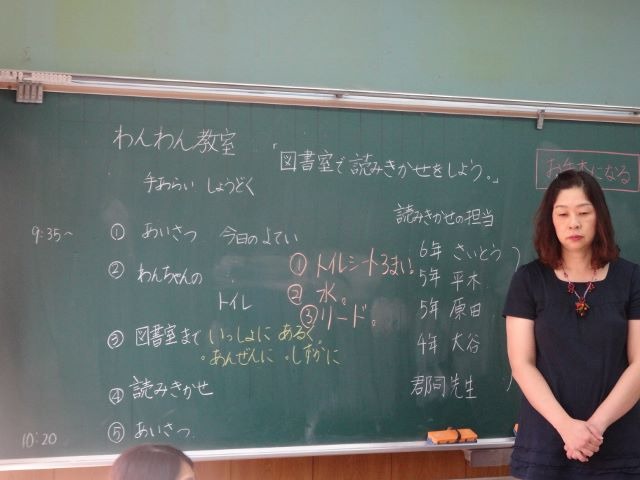 わんわん教室
「図書室で読みきかせをしよう。」
手あらい しょうどく
お年本になる
9:35～
① あいさつ 今日のよてい
② わんちゃんの
トイレ
① トイレシート3まい。
② 水。
③ リード。
③ 図書室まで いっしょに あるく。
。あんぜんに 。しずかに
④ 読みきかせ
⑤ あいさつ
10:20
読みきかせの担当
6年 さいとう
5年 平木
5年 原田
4年 大谷
郡司先生